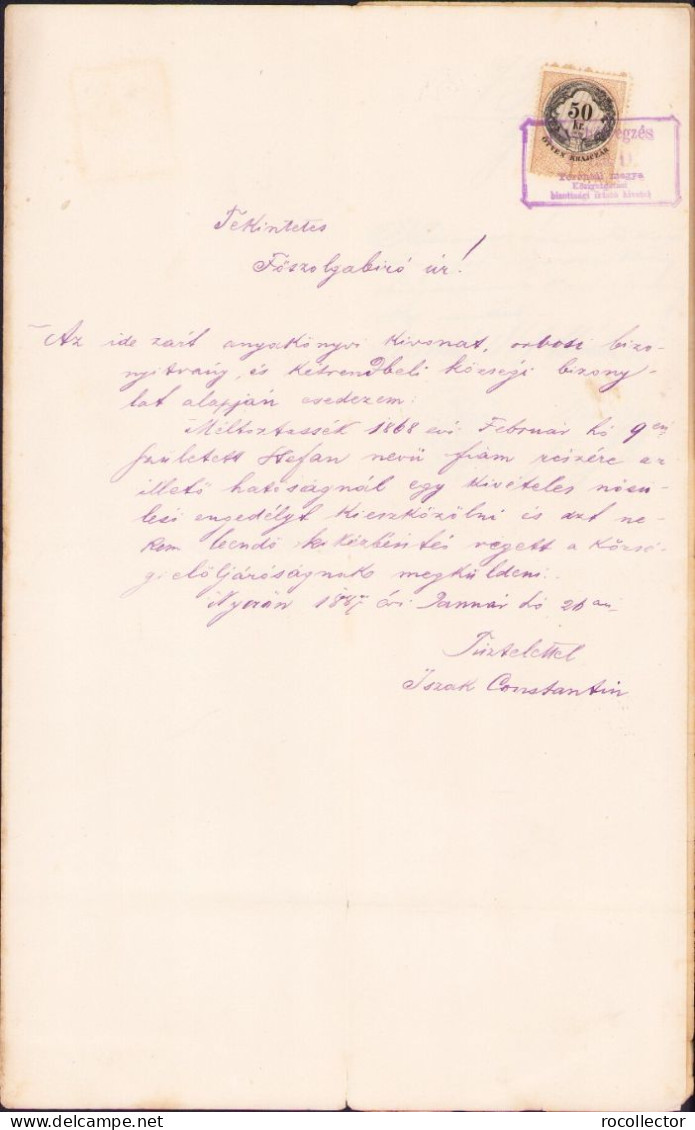 50
kr.
ÖTVEN KRAJCZÁR
Torontál megye
Közigazgatási
bizottsági iktató hivatal
Tekintetes
Főszolgabiró úr!
Az ide zárt anyakönyvi kivonat, orvosi bizo-
nyitvány, és kétrendbeli községi bizony-
lat alapján esedezem:
Méltoztassék 1868 évi Február hó 9én
született Stefan nevü fiam részére az
illető hatóságnál egy kivételes nősü-
lési engedélyt kieszközölni és azt ne-
kem leendő kikézbesítés vegett a közsé-
gi elöljáróságnak megküldeni.
1887 évi Január hó 26 án
Tisztelettel
Iszak Constantin
delcampe.net
rocollector